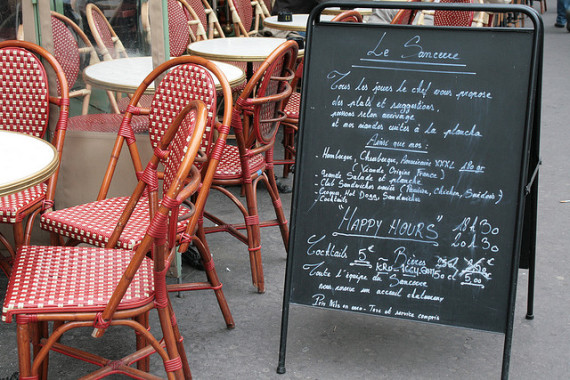 Le Sancerre
Tous les jours le chef vous propose
des plats et suggestions,
poissons selon arrivage
et nos viandes cuites à la plancha
Ainsi que nos :
- Hamburger, Cheeseburger, Américaine XXXL
(Viande Origine France)
- Grande Salade et Tartare
- Club Sandwiches maison (Parisien, Chicken, Suédois)
- Croque, Hot Dogs Sandwiches
- Cocktails
"HAPPY HOURS" 18h30
20h30
Cocktails 5€ Bières
50cl 5,00
Toute l'équipe du Sancerre
vous réserve un accueil chaleureux
Prix Nets en euro - Taxe et service compris